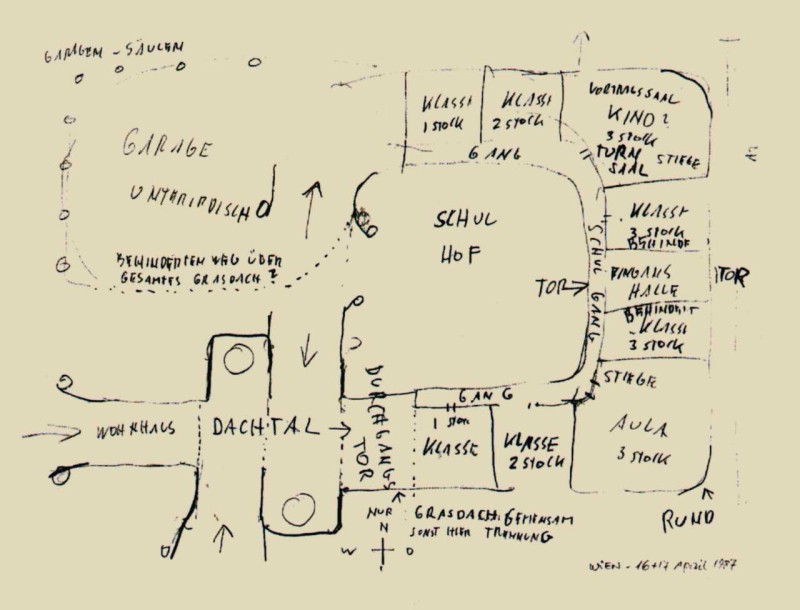 GARAGEN - SÄULEN
KLASSE
1 STOCK
KLASSE
2 STOCK
VORTRAGSSAAL
KINO?
3 STOCK
TURN
SAAL
STIEGE
GANG
GARAGE
UNTERIRDISCH
BEHINDERTEN WEG ÜBER
GESAMTES GRASDACH?
SCHUL
HOF
SCHUL GANG
KLASSE
3 STOCK
BEHINDE
TOR
EINGANGS
HALLE
TOR
BEHINDERT
KLASSE
3 STOCK
STIEGE
GANG
WOHNHAUS
DACHTAL
DURCHGANGS
TOR
1 STOCK
KLASSE
KLASSE
2 STOCK
AULA
3 STOCK
RUND
NUR
GRASDACH: GEMEINSAM
SONST HIER TRENNUNG
N
W
O
WIEN - 16+17 April 1987